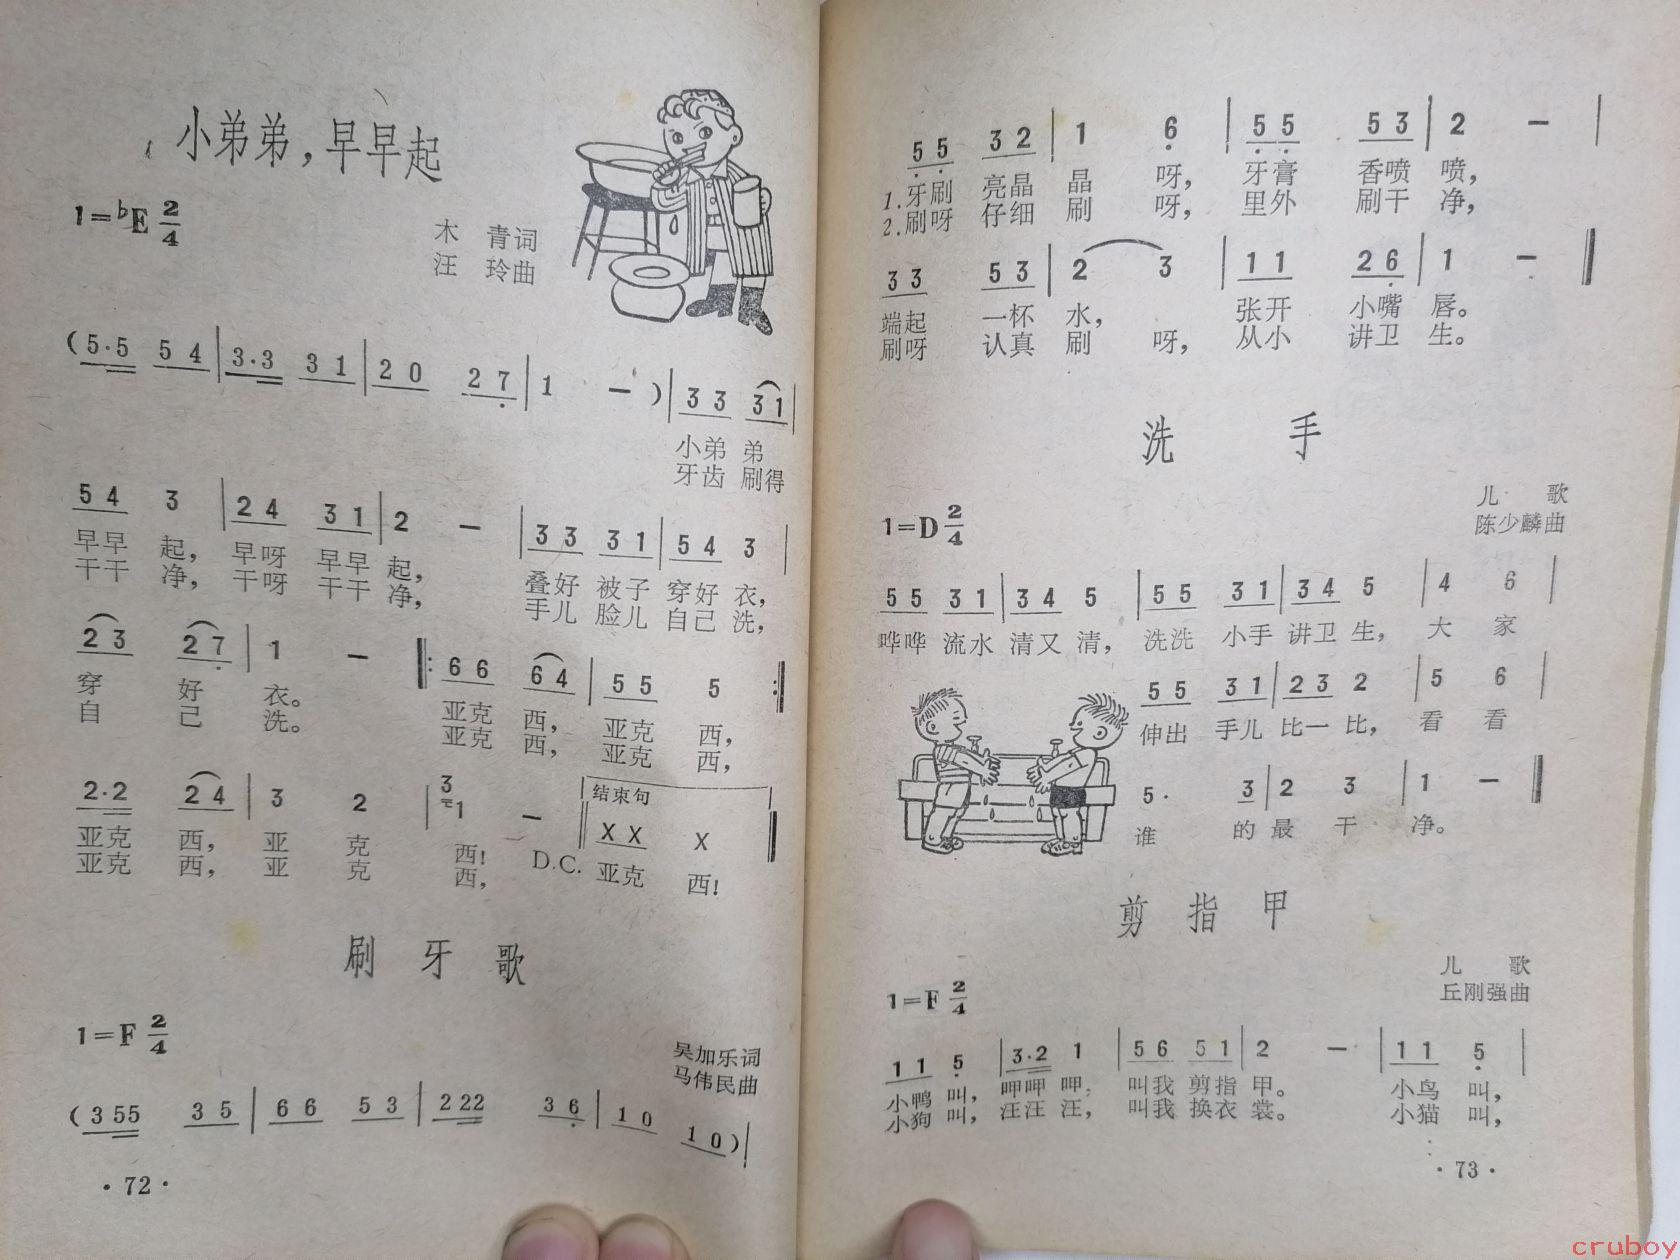 小弟弟，早早起
1=♭E 2/4
木 青词
汪 玲曲
(5·5 5 4 | 3·3 3 1 | 2 0 2 7 | 1 — ) | 3 3 3 1 |
小弟 弟
牙齿 刷得
5 4 3 | 2 4 3 1 | 2 — | 3 3 3 1 | 5 4 3 |
早早 起， 早呀 早早 起， 叠好 被子 穿好 衣，
干干 净， 干呀 干干 净， 手儿 脸儿 自己 洗，
2 3 2 7 | 1 — |: 6 6 6 4 | 5 5 5 :|
穿 好 衣。 亚克 西， 亚克 西，
自 己 洗。 亚克 西， 亚克 西，
2·2 2 4 | 3 2 | 3 1 — || 结束句 X X X ||
亚克 西， 亚 克 西! D.C. 亚克 西!
亚克 西， 亚 克 西，
刷 牙 歌
1=F 2/4
吴加乐词
马伟民曲
(3 55 3 5 | 6 6 5 3 | 2 22 3 6 | 1 0 1 0 ) |
· 72 ·
5 5 3 2 | 1 6 | 5 5 5 3 | 2 — |
1.牙刷 亮晶 晶 呀， 牙膏 香喷 喷，
2.刷呀 仔细 刷 呀， 里外 刷干 净，
3 3 5 3 | 2 3 | 1 1 2 6 | 1 — ||
端起 一杯 水， 张开 小嘴 唇。
刷呀 认真 刷 呀， 从小 讲卫 生。
洗 手
儿 歌
1=D 2/4
陈少麟曲
5 5 3 1 | 3 4 5 | 5 5 3 1 | 3 4 5 | 4 6 |
哗哗 流水 清又 清， 洗洗 小手 讲卫 生， 大 家
5 5 3 1 | 2 3 2 | 5 6 |
伸出 手儿 比一 比， 看 看
5· 3 | 2 3 | 1 — ||
谁 的 最 干 净。
剪 指 甲
儿 歌
1=F 2/4
丘刚强曲
1 1 5 | 3·2 1 | 5 6 5 1 | 2 — | 1 1 5 |
小鸭 叫， 呷呷 呷， 叫我 剪指 甲。 小鸟 叫，
小狗 叫， 汪汪 汪， 叫我 换衣 裳。 小猫 叫，
· 73 ·
cruboy